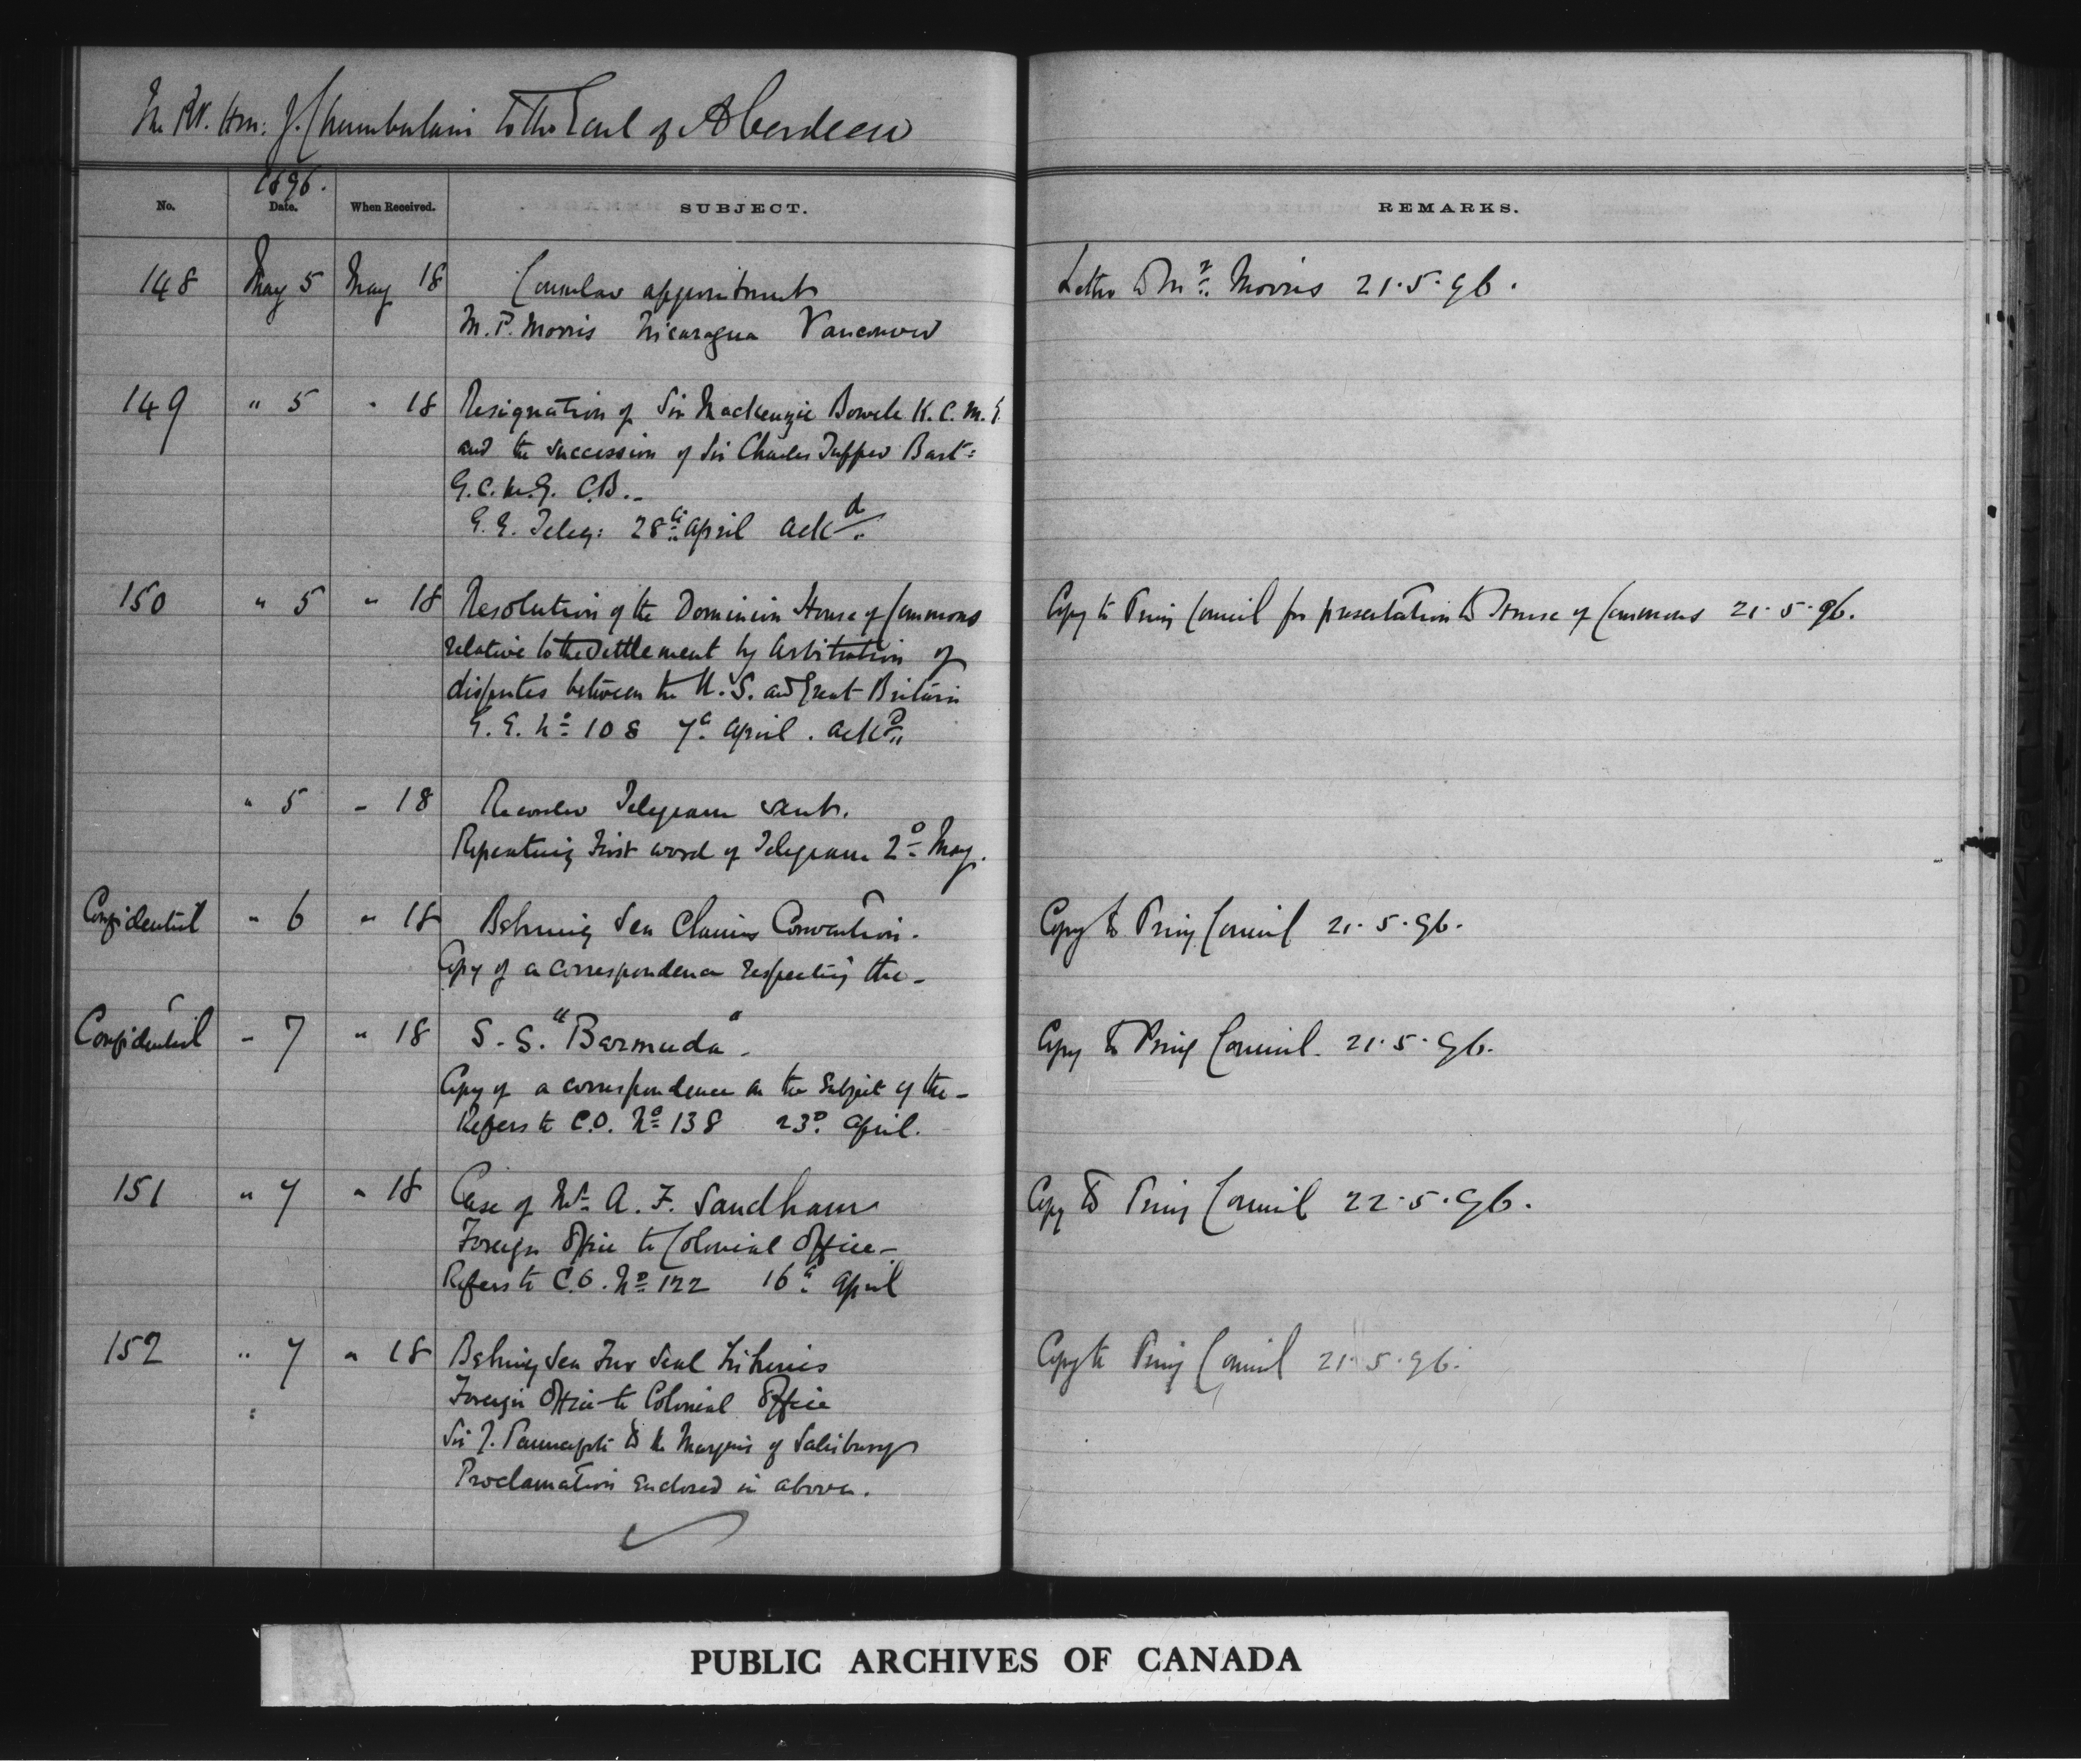 The Rt. Hon: J. Chamberlain to the Earl of Aberdeen
1896.
No. Date. When Received. SUBJECT. REMARKS.
148 May 5 May 18 Consular appointment Letter to Mr. Morris 21.5.96.
M.P. Morris Nicaragua Vancouver
149 " 5 " 18 Resignation of Sir Mackenzie Bowell K.C.M.G.
and the succession of Sir Charles Tupper Bart:
G.C.M.G. C.B.
G.G. Teleg: 28th April ackd.
150 " 5 " 18 Resolution of the Dominion House of Commons Copy to Privy Council for presentation to House of Commons 21.5.96.
relative to the settlement by Arbitration of
disputes between the U.S. and Great Britain
G.G. No 108 7th April. ackd
" 5 " 18 Recorder Telegram sent.
Repeating first word of Telegram 2d May.
Confidential " 6 " 18 Behring Sea Claims Convention. Copy to Privy Council 21.5.96.
Copy of a correspondence respecting the -
Confidential " 7 " 18 S.S. "Bermuda". Copy to Privy Council. 21.5.96.
Copy of a correspondence on the Subject of the -
Refers to C.O. No 138 23d. April.
151 " 7 " 18 Case of Mr. A. F. Sandham Copy to Privy Council 22.5.96.
Foreign Office to Colonial Office -
Refers to C.O. No 122 16th April
152 " 7 " 18 Behring Sea Fur Seal Fisheries Copy to Privy Council 21.5.96.
Foreign Office to Colonial Office
Sir J. Pauncefote to the Marquis of Salisbury
Proclamation Enclosed in above.
PUBLIC ARCHIVES OF CANADA